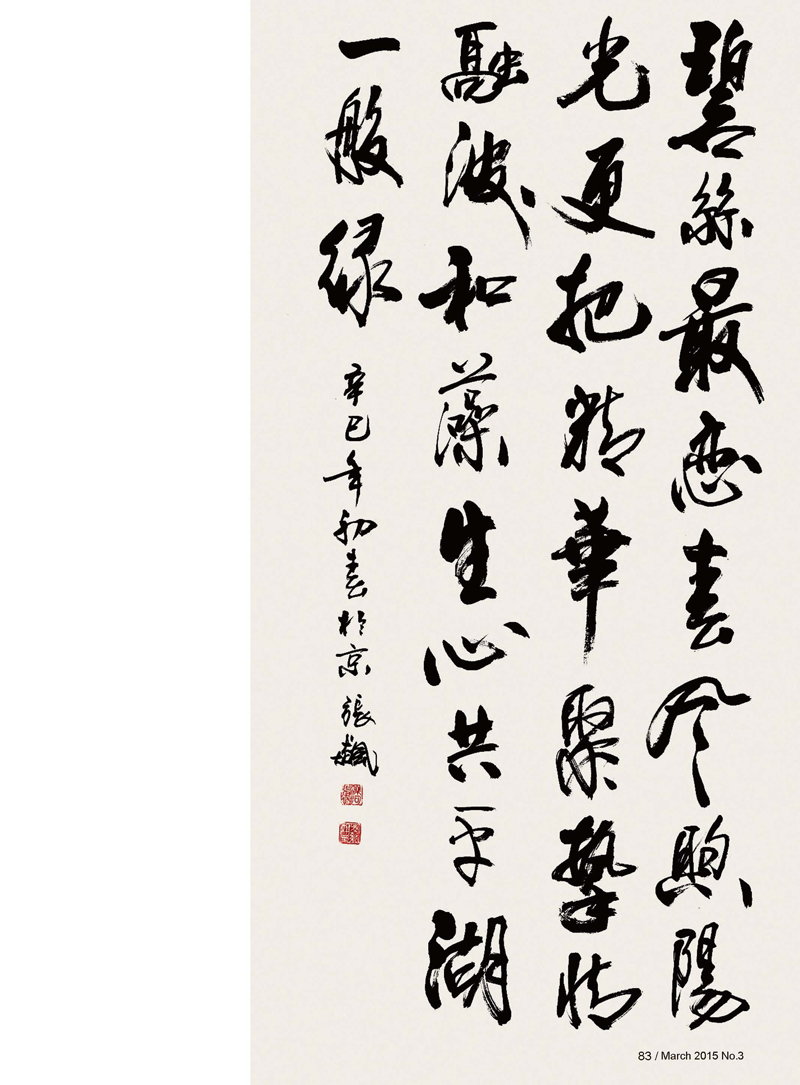 碧絲最戀春風煦陽
光更把精華聚摯情
融波和藻生心共平湖
一般緑
辛巳年初春於京 張飆
83 / March 2015 No.3